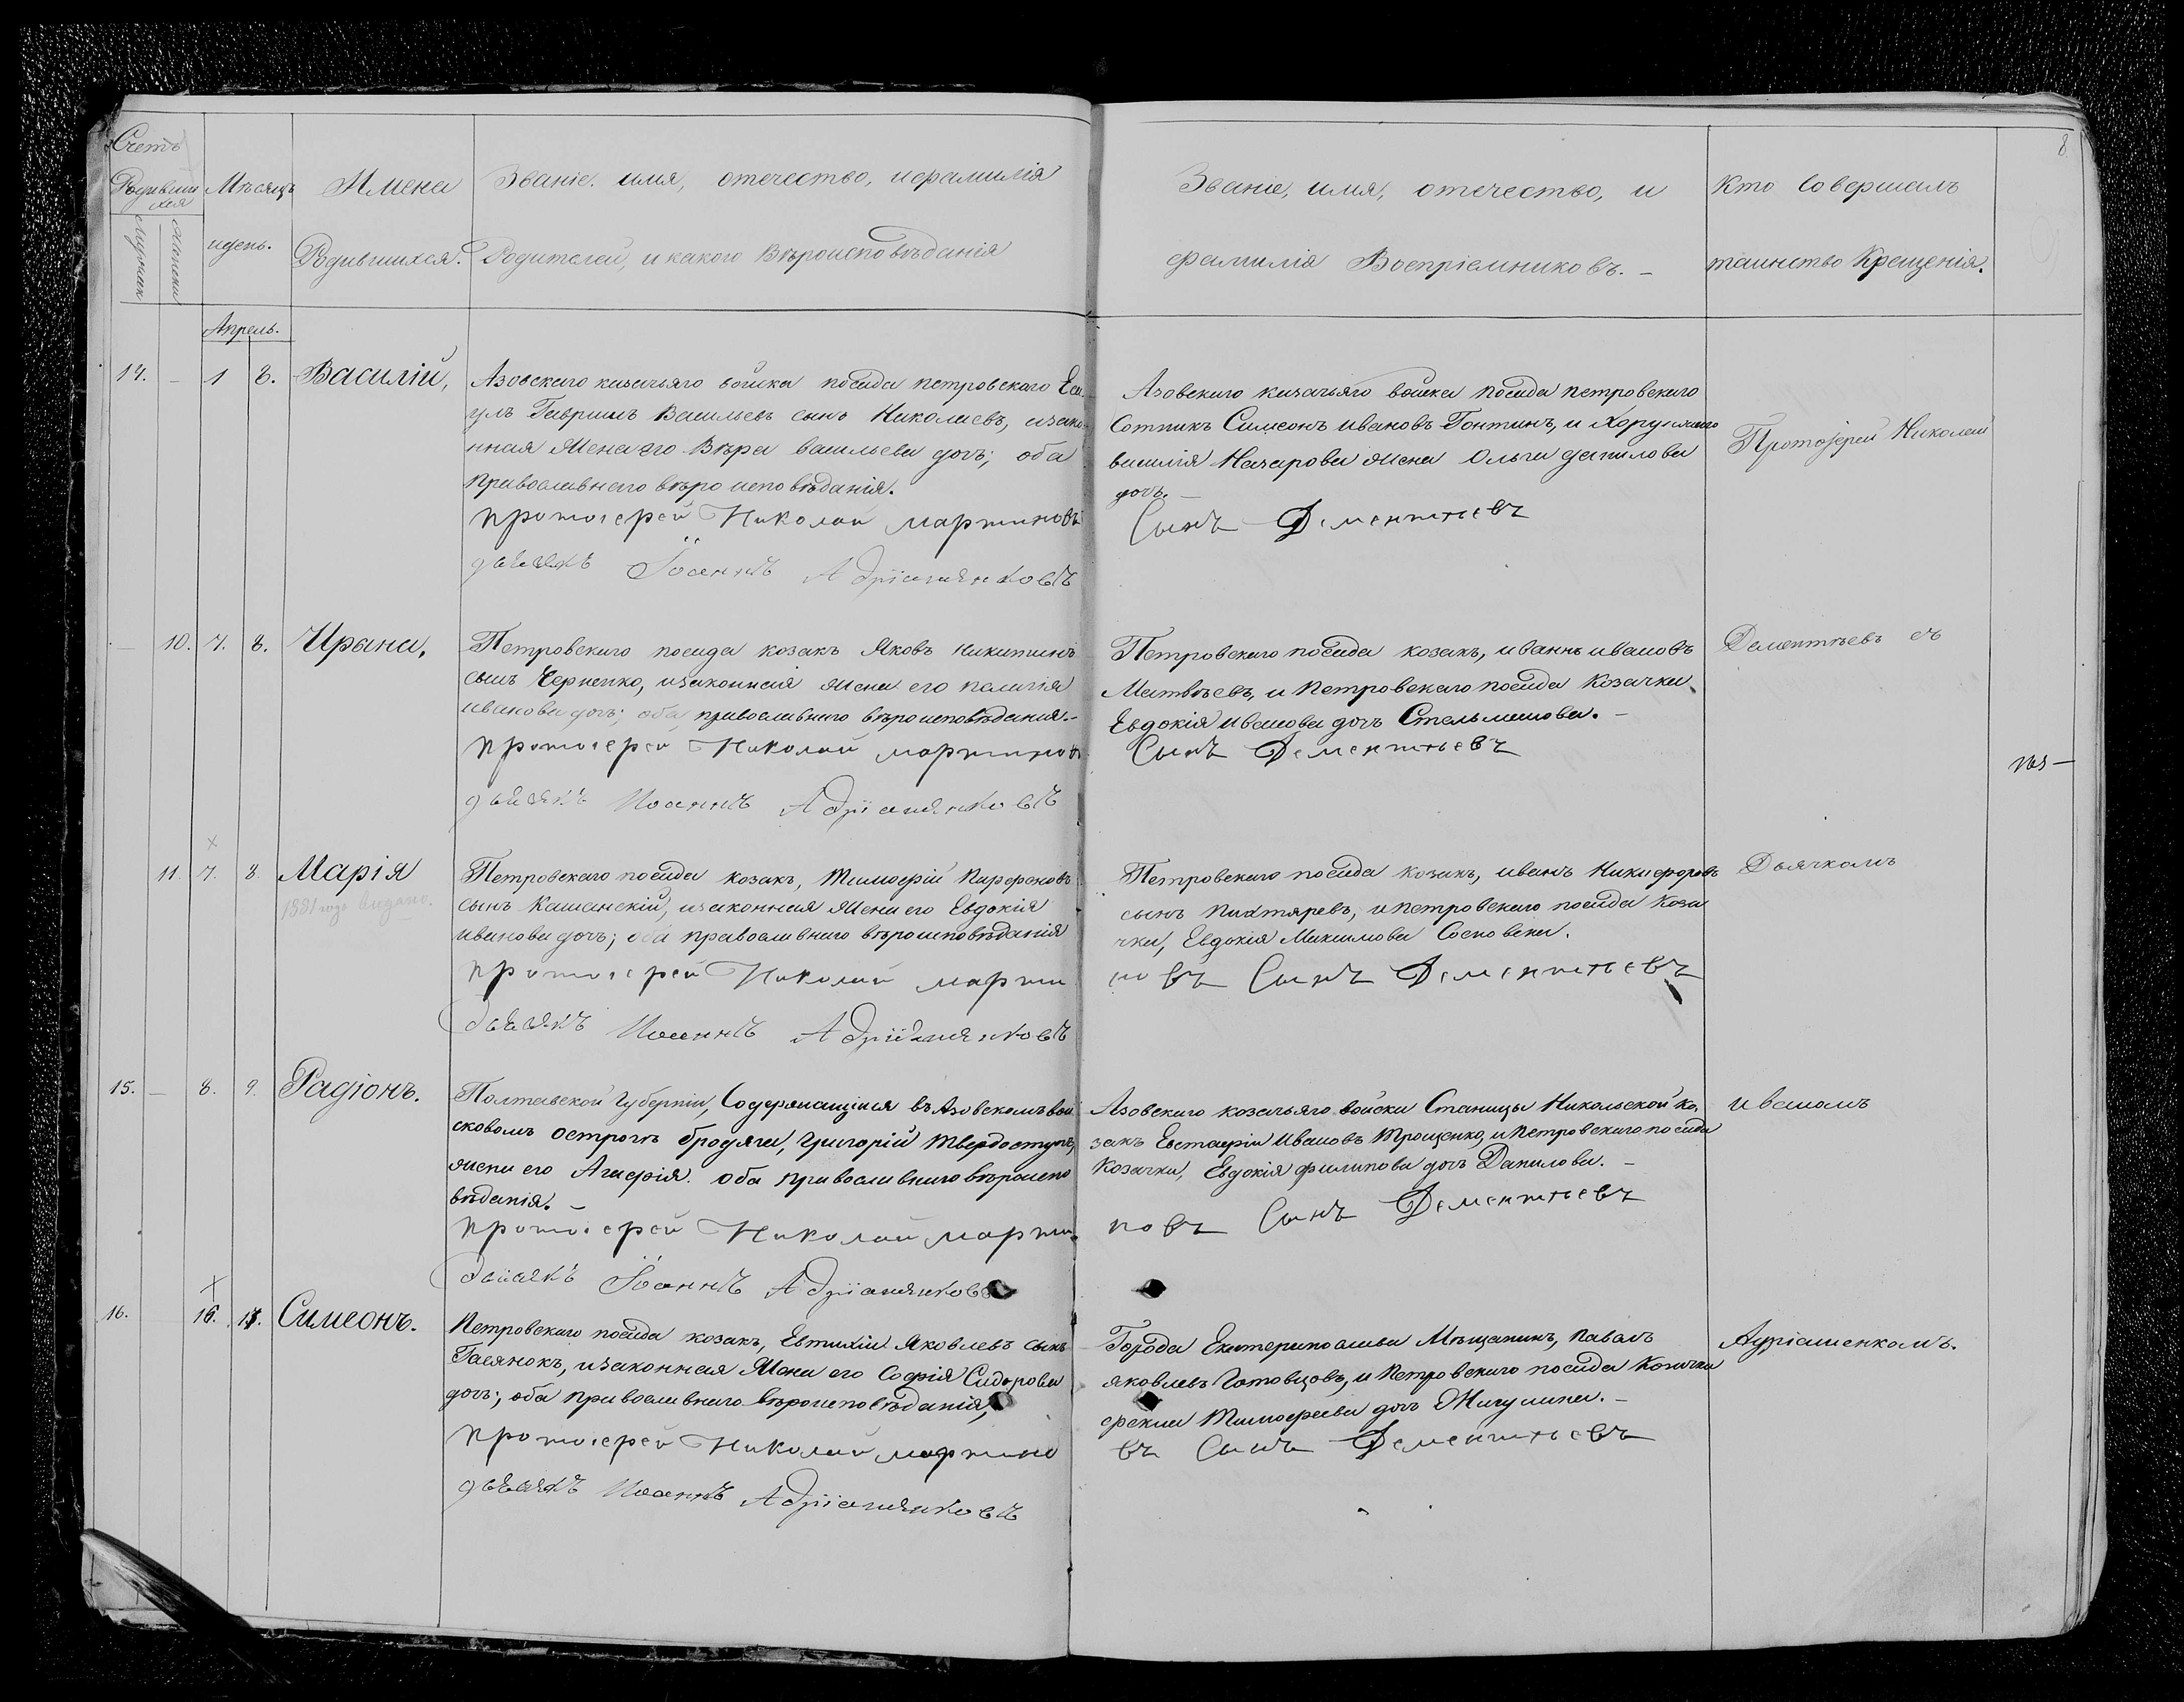 8
Счетъ
Родивши
хся
Мужска
Женска
Мѣсяцъ
идень.
Имена
Родившихся.
Званіе. имя, отечество, ифамилія
Родителей, и какого Вѣроисповѣданія
Званіе, имя, отечество, и
фамилія Воспріемниковъ. –
Кто Совершалъ
таинство Крещенія.
Апрель.
14. – 1 8. Василій,
Азовскаго казачьяго войска посада петровскаго Еса-
улъ Гавриилъ Васильевъ сынъ Николаевъ, изако-
нная Жена его Вѣра васильева дочь; оба
православнаго вѣро исповѣданія.
протоіерей Николай мартиновъ
дьячекъ Іоаннъ Адріаненковъ
Азовскаго казачьяго войска посада петровскаго
Сотникъ Симеонъ ивановъ Гонтинъ, и Хорунжаго
василія Назарова жена Ольга данилова
дочь. –
Сынъ Дементьевъ
Протоіерей Николай
– 10. 7. 8. Ирына,
Петровскаго посада козакъ Яковъ никитинъ
сынъ Черненко, изаконная жена его пелагія
иванова дочь; оба православнаго вѣроисповѣдания. –
протоіерей Николай мартинов
дьячекъ Иоаннъ Адріаненковъ
Петровскаго посада козакъ, иваннъ ивановъ
Матвѣевъ, и петровскаго посада козачка
Евдокія иванова дочь Стельмахова. –
Сынъ Дементьевъ
Дементьевъ съ
11. 7. 8. Марія
1881 года видано.
Петровскаго посада козакъ, Тимофій Парфеновъ
сынъ Кашанскій, изаконная Жена его Евдокія
иванова дочь; оба православнаго вѣроисповѣданія
протоіерей Николай марти
дьячекъ Иоаннъ Адріаненковъ
Петровскаго посада козакъ, иванъ Никифоровъ
сынъ Пихтяревъ, и петровскаго посада коза
чка, Евдокія Максимова Сосновска.
новъ Сынъ Дементьевъ
Дьячкомъ
15. – 8. 9. Радіонъ.
Полтавской Губерніи, Содержащійся въ Азовскомъ вой
сковомъ острогѣ бродяга, григорій Твердоступъ,
жена его Агафія. оба православнаго вѣроиспо
вѣданія. –
протоіерей Николай марти
дьячекъ Іоаннъ Адріаненковъ
Азовскаго козачьяго войска Станицы Никольской ко.
закъ Евстафій ивановъ Трощенко, и Петровскаго посада
Козачка, Евдокія филипова дочь Данилова. –
новъ Сынъ Дементьевъ
иваномъ
16. 16. 17. Симеонъ.
Петровскаго посада козакъ, Евтихій Яковлевъ сынъ
Гасянокъ, изаконная Жена его Софія Сидорова
дочь; оба православнаго вѣроисповѣданія,
протоіерей Николай мартино
дьячекъ Иоаннъ Адріаненковъ
Города Екатеринослава Мѣщанинъ, павелъ
яковлевъ Готовцовъ, и Петровскаго посада Козачка
фекла Тимофеева дочь Жигулина. –
въ Сынъ Дементьевъ
Адріаненкомъ.